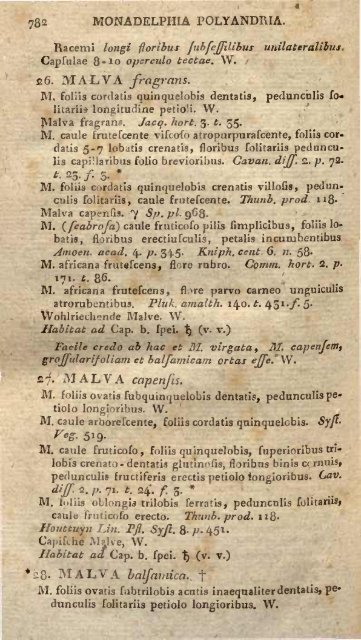 782 MONADELPHIA POLYANDRIA.
Racemi longi floribus ſubſeſſilibus unilateralibus.
Capſulae 8-10 operculo tectae. W.
26. MALVA fragrans.
M. foliis cordatis quinquelobis dentatis, pedunculis ſo-
litariis longitudine petioli. W.
Malva fragrans. Jacq. hort. 3. t. 35.
M. caule fruteſcente viſcoſo atropurpuraſcente, foliis cor-
datis 5-7 lobatis crenatis, floribus ſolitariis peduncu-
lis capillaribus folio brevioribus. Cavan. diſſ. 2. p. 72.
t. 23. f. 3. *
M. foliis cordatis quinquelobis crenatis villoſis, pedun-
culis ſolitariis, caule fruteſcente. Thunb. prod. 118.
Malva capenſis. γ Sp. pl. 968.
M. (ſcabroſa) caule fruticoſo pilis ſimplicibus, foliis lo-
batis, floribus erectiuſculis, petalis incumbentibus
Amoen. acad. 4. p. 345. Kniph. cent 6. n. 58.
M. africana fruteſcens, flore rubro. Comm. hort. 2. p.
171. t. 86.
M. africana fruteſcens, flore parvo carneo unguiculis
atrorubentibus. Pluk. amalth. 140. t. 431. f. 5.
Wohlriechende Malve. W.
Habitat ad Cap. b. ſpei. ♄ (v. v.)
Facile credo ab hac et M. virgata, M. capenſem,
groſſularifoliam et balſamicam ortas eſſe. W.
27. MALVA capenſis.
M. foliis ovatis ſubquinquelobis dentatis, pedunculis pe-
tiolo longioribus. W.
M. caule arboreſcente, foliis cordatis quinquelobis. Syſt.
Veg. 519.
M. caule fruticoſo, foliis quinquelobis, ſuperioribus tri-
lobis crenato-dentatis glutinoſis, floribus binis cernuis,
pedunculis fructiferis erectis petiolo longioribus. Cav.
diſſ. 2. p. 71. t. 24. f. 3. *
M. foliis oblongis trilobis ſerratis, pedunculis ſolitariis,
caule fruticoſo erecto. Thunb. prod. 118.
Houttuyn Lin. Pfl. Syſt. 8. p. 451.
Capiſche Malve, W.
Habitat ad Cap. b. ſpei. ♄ (v. v.)
*28. MALVA balſamica. †
M. foliis ovatis ſubtrilobis acutis inaequaliter dentatis, pe-
dunculis ſolitariis petiolo longioribus. W.